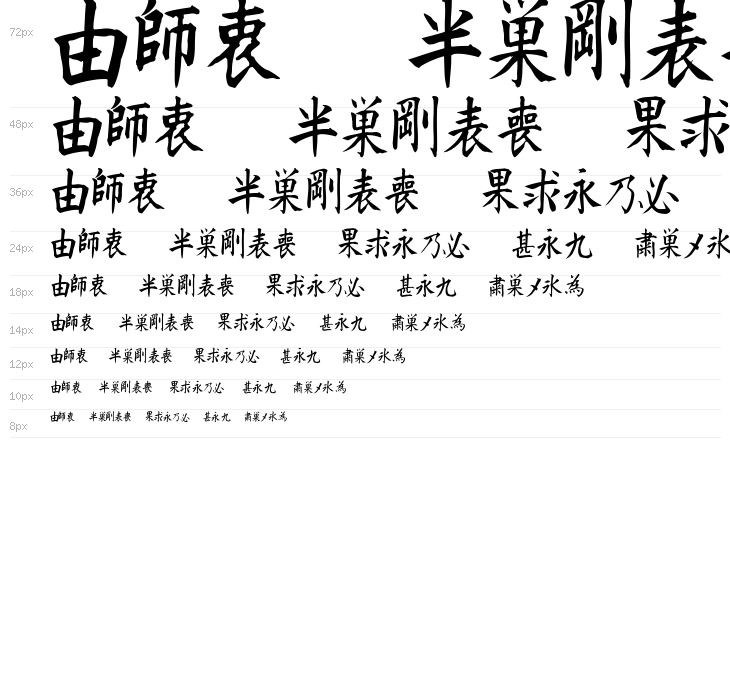 72px 由師衷 半巣剛表
48px 由師衷 半巣剛表喪 果求
36px 由師衷 半巣剛表喪 果求永乃必
24px 由師衷 半巣剛表喪 果求永乃必 甚永九 粛巣〆氷
18px 由師衷 半巣剛表喪 果求永乃必 甚永九 粛巣〆氷為
14px 由師衷 半巣剛表喪 果求永乃必 甚永九 粛巣〆氷為
12px 由師衷 半巣剛表喪 果求永乃必 甚永九 粛巣〆氷為
10px 由師衷 半巣剛表喪 果求永乃必 甚永九 粛巣〆氷為
8px 由師衷 半巣剛表喪 果求永乃必 甚永九 粛巣〆氷為